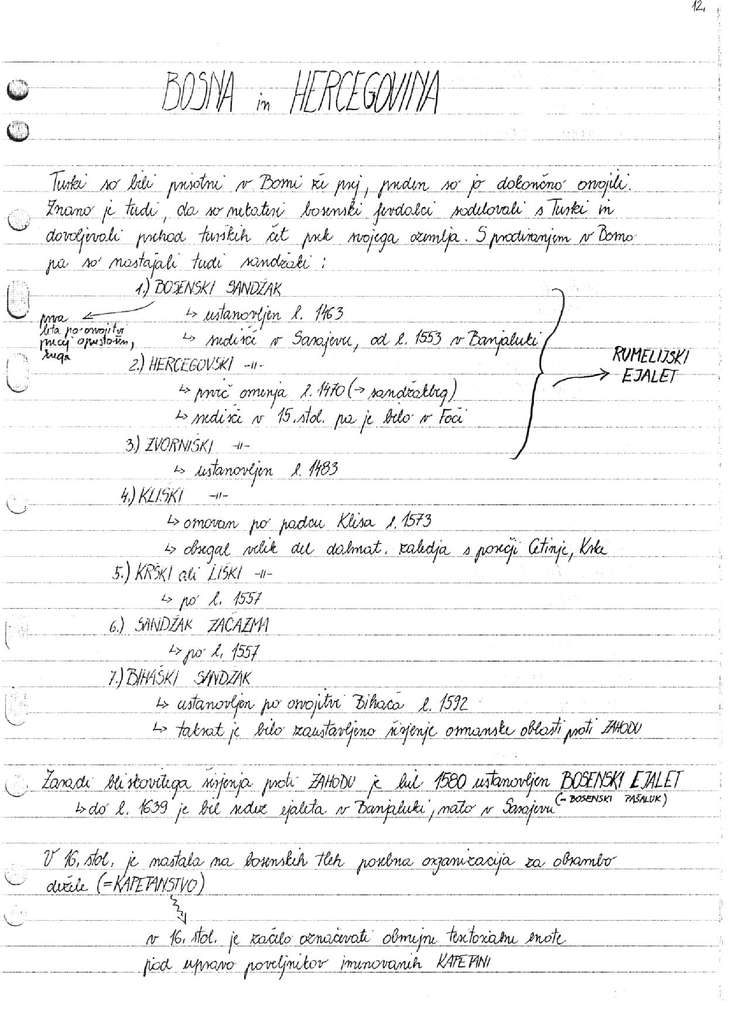 12.
BOSNA in HERCEGOVINA
Turki so bili prisotni v Bosni že prej, preden so jo dokončno osvojili.
Znano je tudi, da so nekateri bosenski fevdalci sodelovali s Turki in
dovoljevali prehod turških čet prek svojega ozemlja. S prodiranjem v Bosno
pa so nastajali tudi sandžaki:
1.) BOSENSKI SANDŽAK
↳ ustanovljen l. 1463
prva
leta po osvojitvi
precej opustošen,
kuga
↳ središče v Sarajevu, od l. 1553 v Banjaluki
2.) HERCEGOVSKI -||-
↳ prvič omenja l. 1470 (→ sandžakbeg)
↳ središče v 15. stol. pa je bilo v Foči
RUMELIJSKI
EJALET
3.) ZVORNIŠKI -||-
↳ ustanovljen l. 1483
4.) KLIŠKI -||-
↳ osnovan po padcu Klisa l. 1573
↳ obsegal velik del dalmat. zaledja s porečji Cetinje, Krke
5.) KRŠKI ali LIŠKI -||-
↳ po l. 1557
6.) SANDŽAK ZAČAZMA
↳ po l. 1557
7.) BIHAŠKI SANDŽAK
↳ ustanovljen po osvojitvi Bihaća l. 1592
↳ takrat je bilo zaustavljeno širjenje osmanske oblasti proti ZAHODU
Zaradi bliskovitega širjenja proti ZAHODU je bil 1580 ustanovljen BOSENSKI EJALET
(= BOSENSKI PAŠALUK)
↳ do l. 1639 je bil sedež ejaleta v Banjaluki, nato v Sarajevu
V 16. stol. je nastala na bosenskih tleh posebna organizacija za obrambo
dežele (=KAPETANSTVO)
v 16. stol. je začelo označevati obmejne teritorialne enote
pod upravo poveljnikov imenovanih KAPETANI